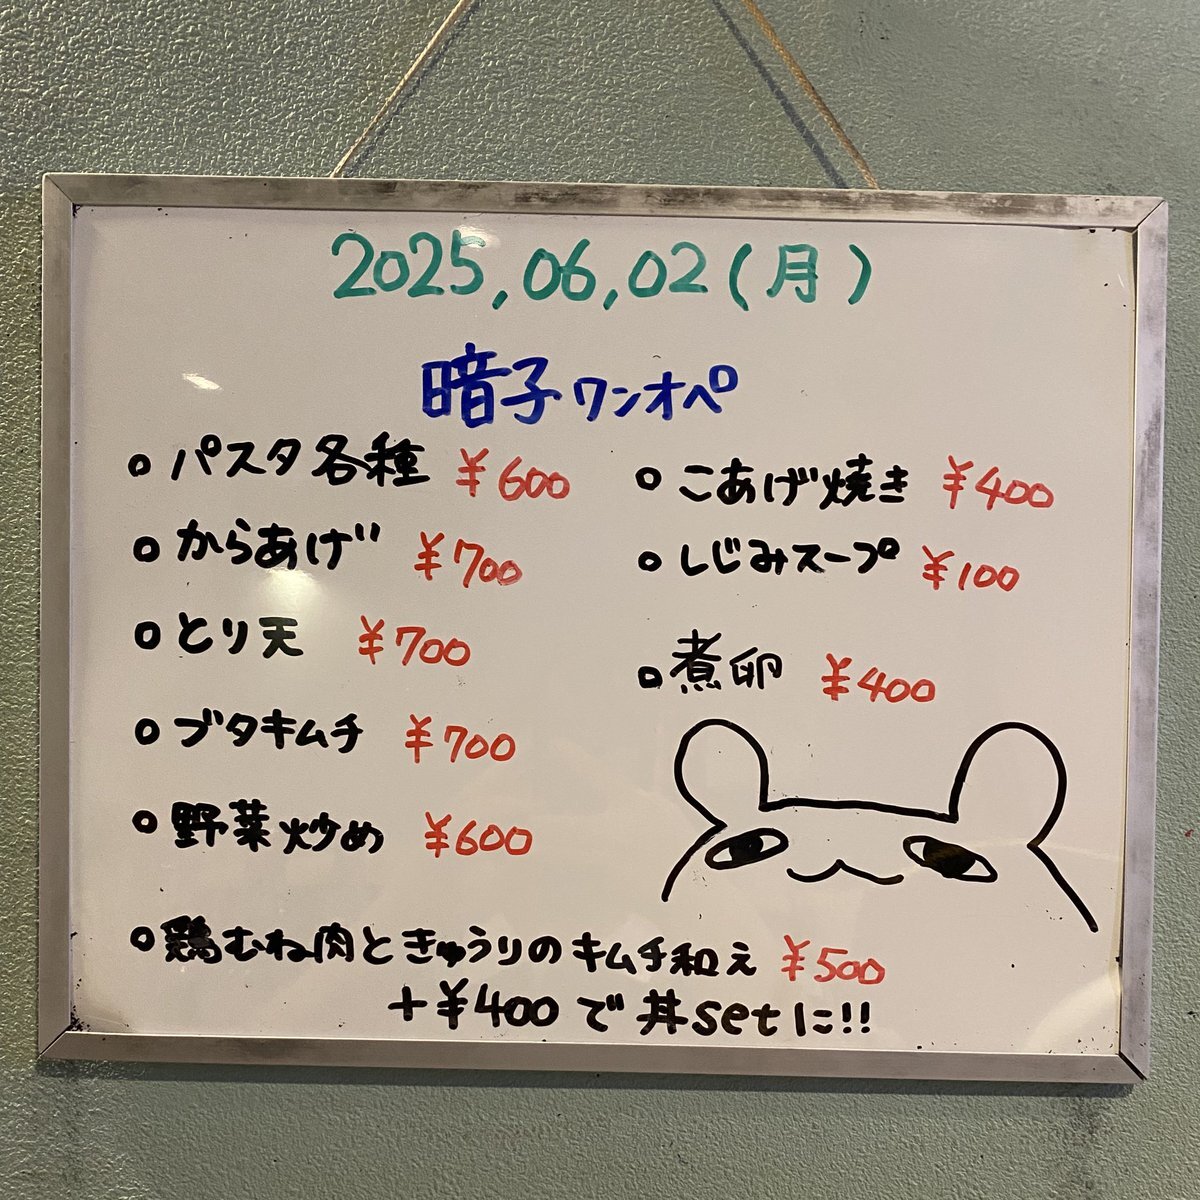 2025,06,02(月)
暗子ワンオペ
○ パスタ各種 ¥600
○ からあげ ¥700
○ とり天 ¥700
○ ブタキムチ ¥700
○ 野菜炒め ¥600
○ こあげ焼き ¥400
○ しじみスープ ¥100
○ 煮卵 ¥400
○ 鶏むね肉ときゅうりのキムチ和え ¥500
+¥400で丼setに!!